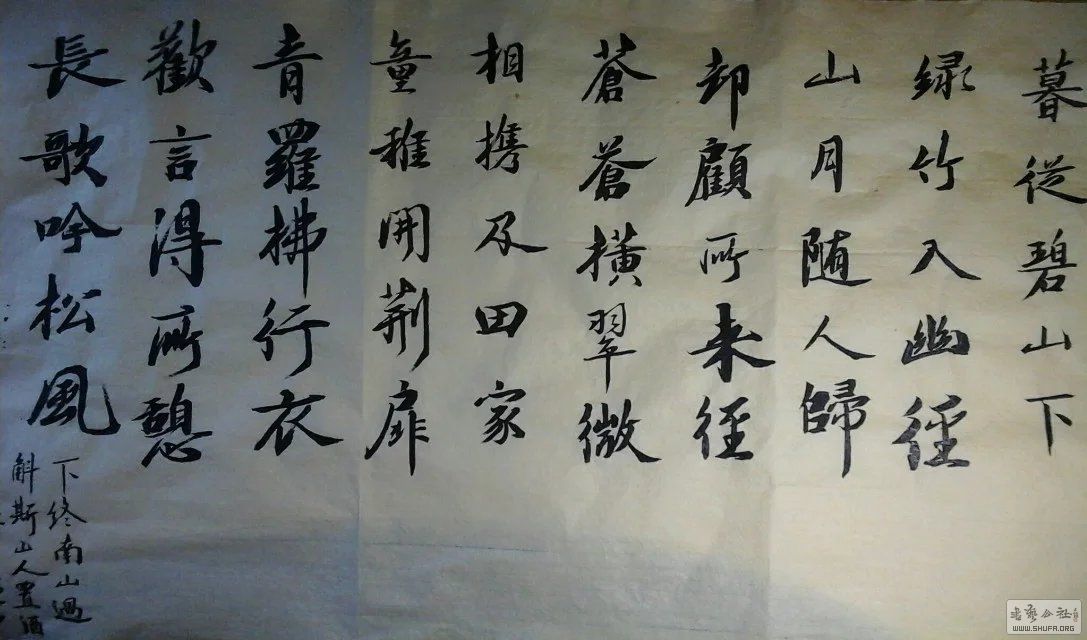 暮從碧山下
緑竹入幽徑
山月随人歸
却顧所来徑
蒼蒼橫翠微
相携及田家
童稚開荊扉
青羅拂行衣
歡言得所憩
長歌吟松風
下终南山過
斛斯山人置酒
书艺公社
WWW.SHUFA.ORG